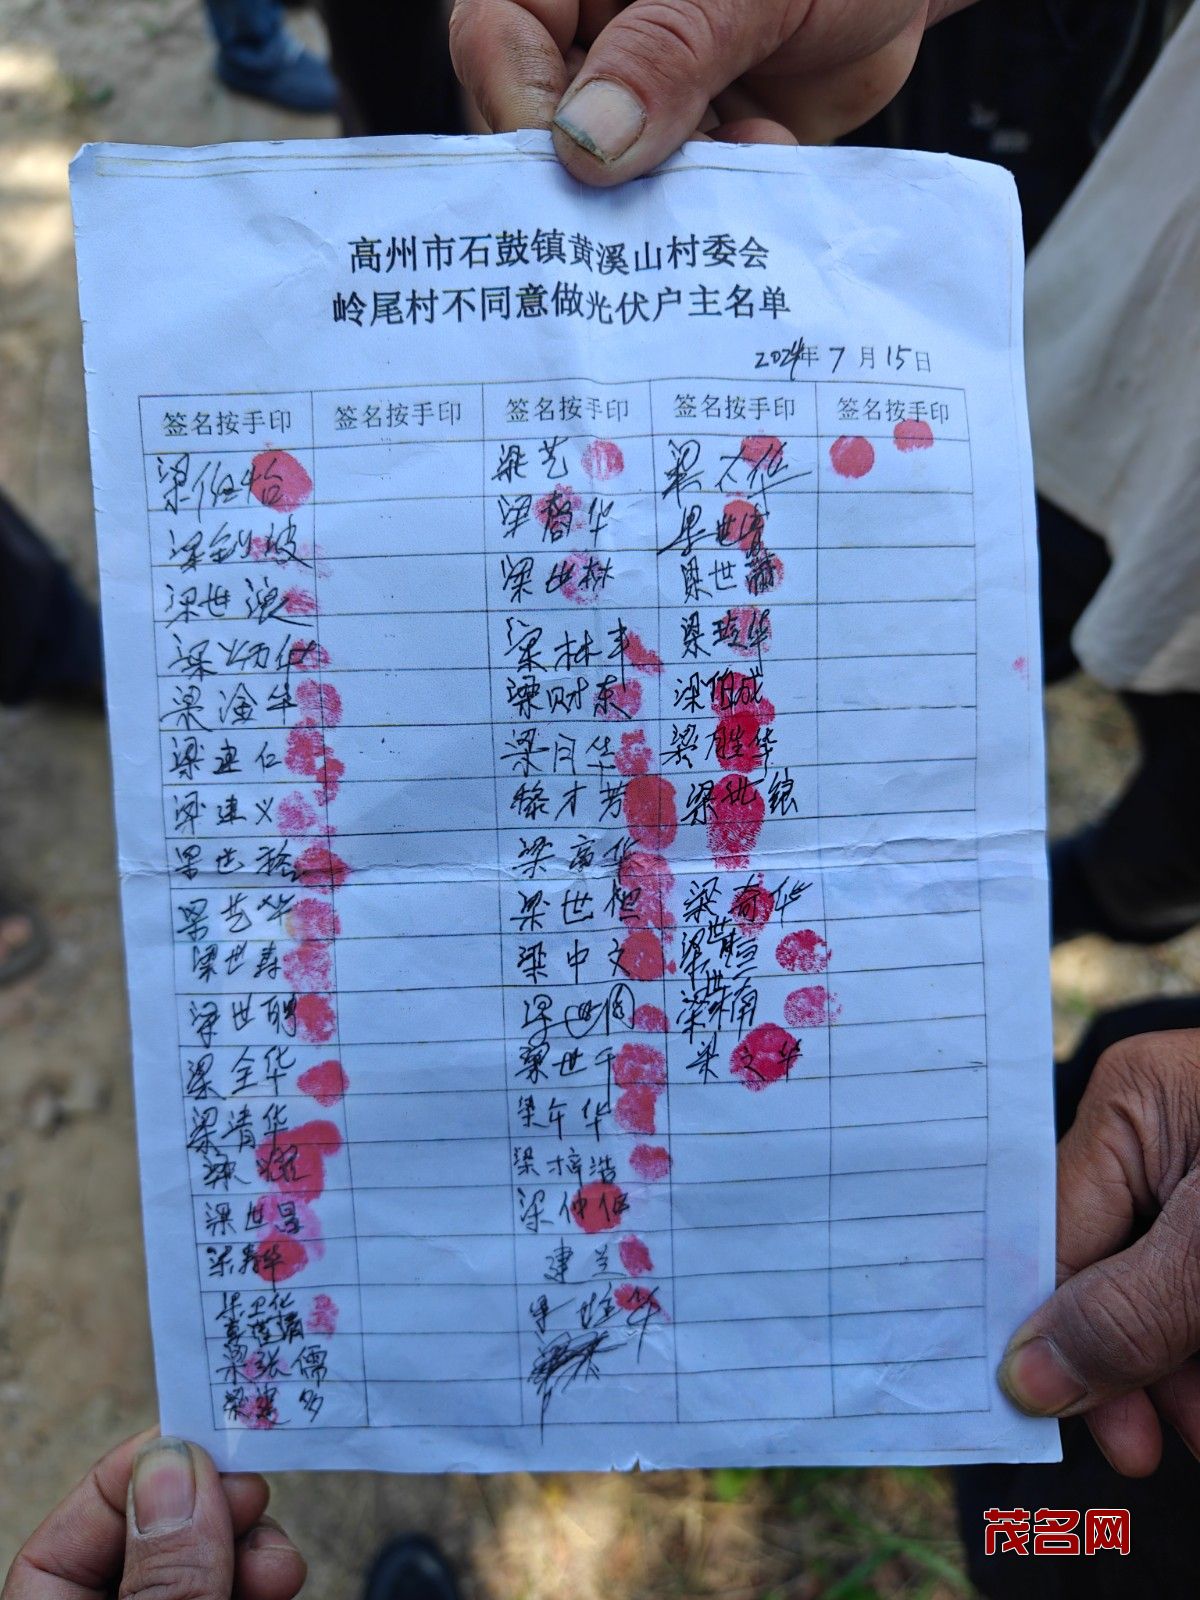 高州市石鼓镇黄溪山村委会
岭尾村不同意做光伏户主名单
2024年7月15日
签名按手印 签名按手印 签名按手印 签名按手印 签名按手印
梁伯怡 梁艺 梁太华
梁剑波 梁智华 梁世青
梁世浪 梁世林 梁世萧
梁炳仕 梁林丰 梁琼华
梁淦华 梁财东 梁伯成
梁建仁 梁月华 梁胜华
梁建义 黎才芳 梁世锒
梁世 梁富华
梁艺华 梁世恒 梁奇华
梁世寿 梁中文 梁世
梁世聘 梁世 梁世南
梁全华 梁世千 梁文华
梁清华 梁午华
梁梓浩
梁世昌 梁仲伯
梁寿华 建兰
梁卫华
梁张儒
梁建多
茂名网